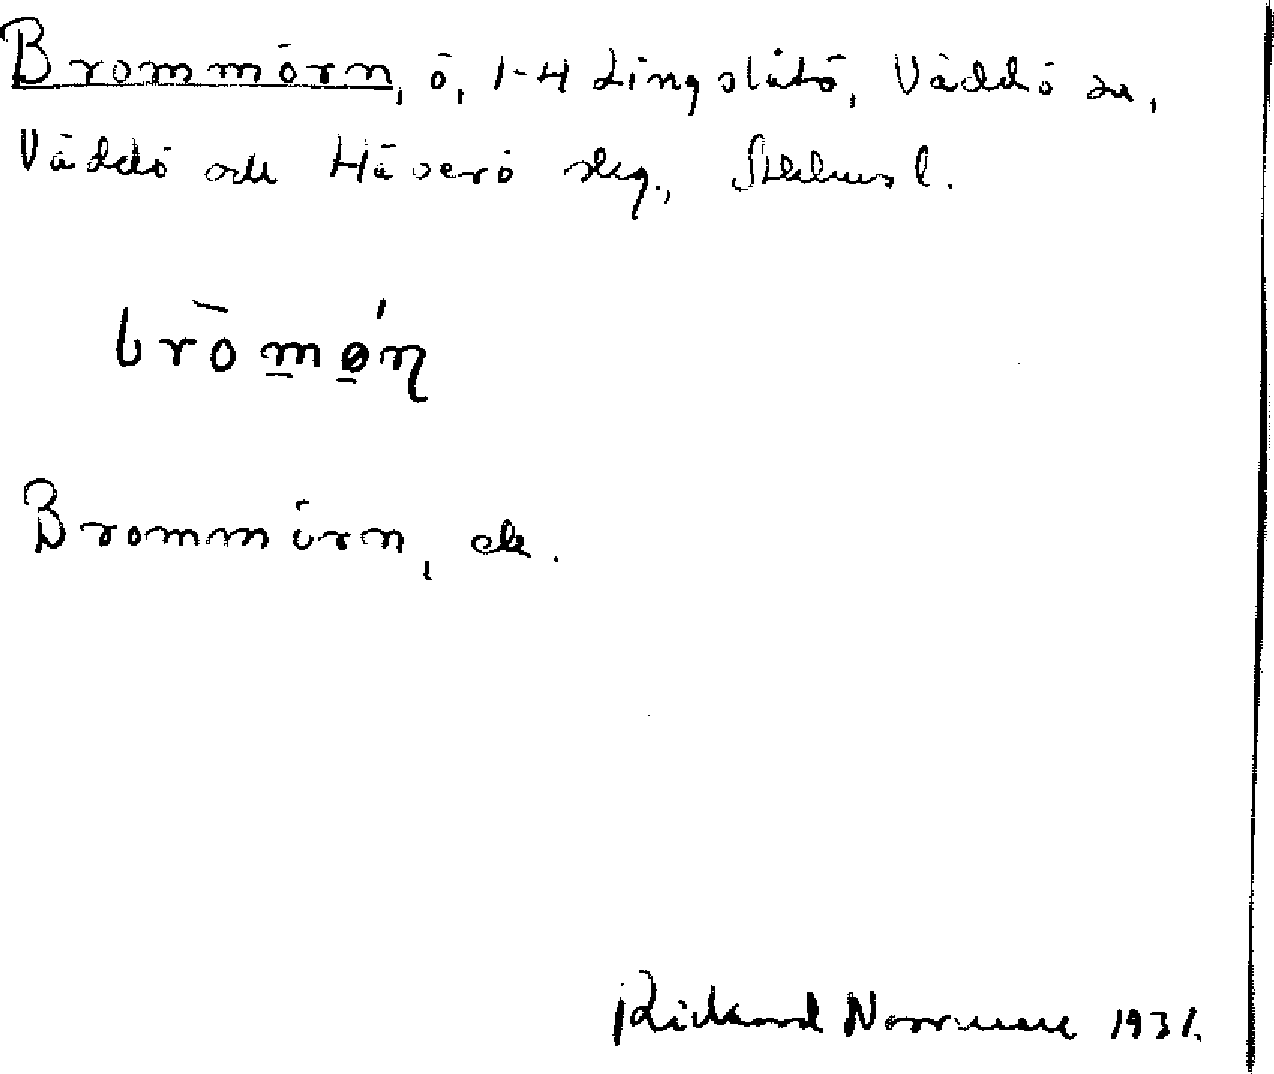 Brommörn, ö, 1-4 Tingslätö, Väddö sn,
Väddö och Häverö skg., Sthlms l.
bròmǿn
Brommörn, ek.
Rickard Norrmen 1931.